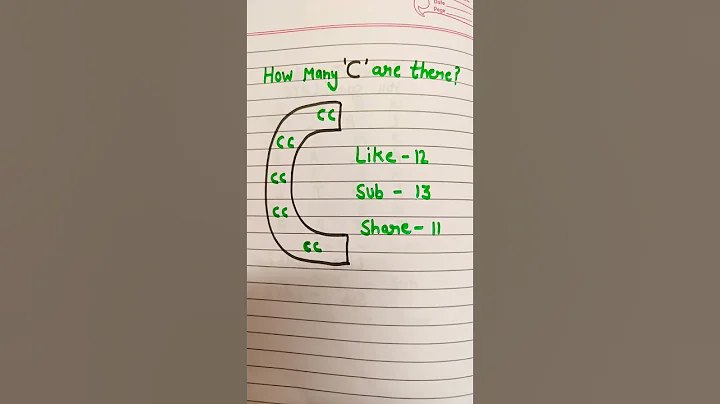 Date
Page
How Many 'C' are there?
cc
cc
cc
cc
cc
Like - 12
Sub - 13
Share - 11